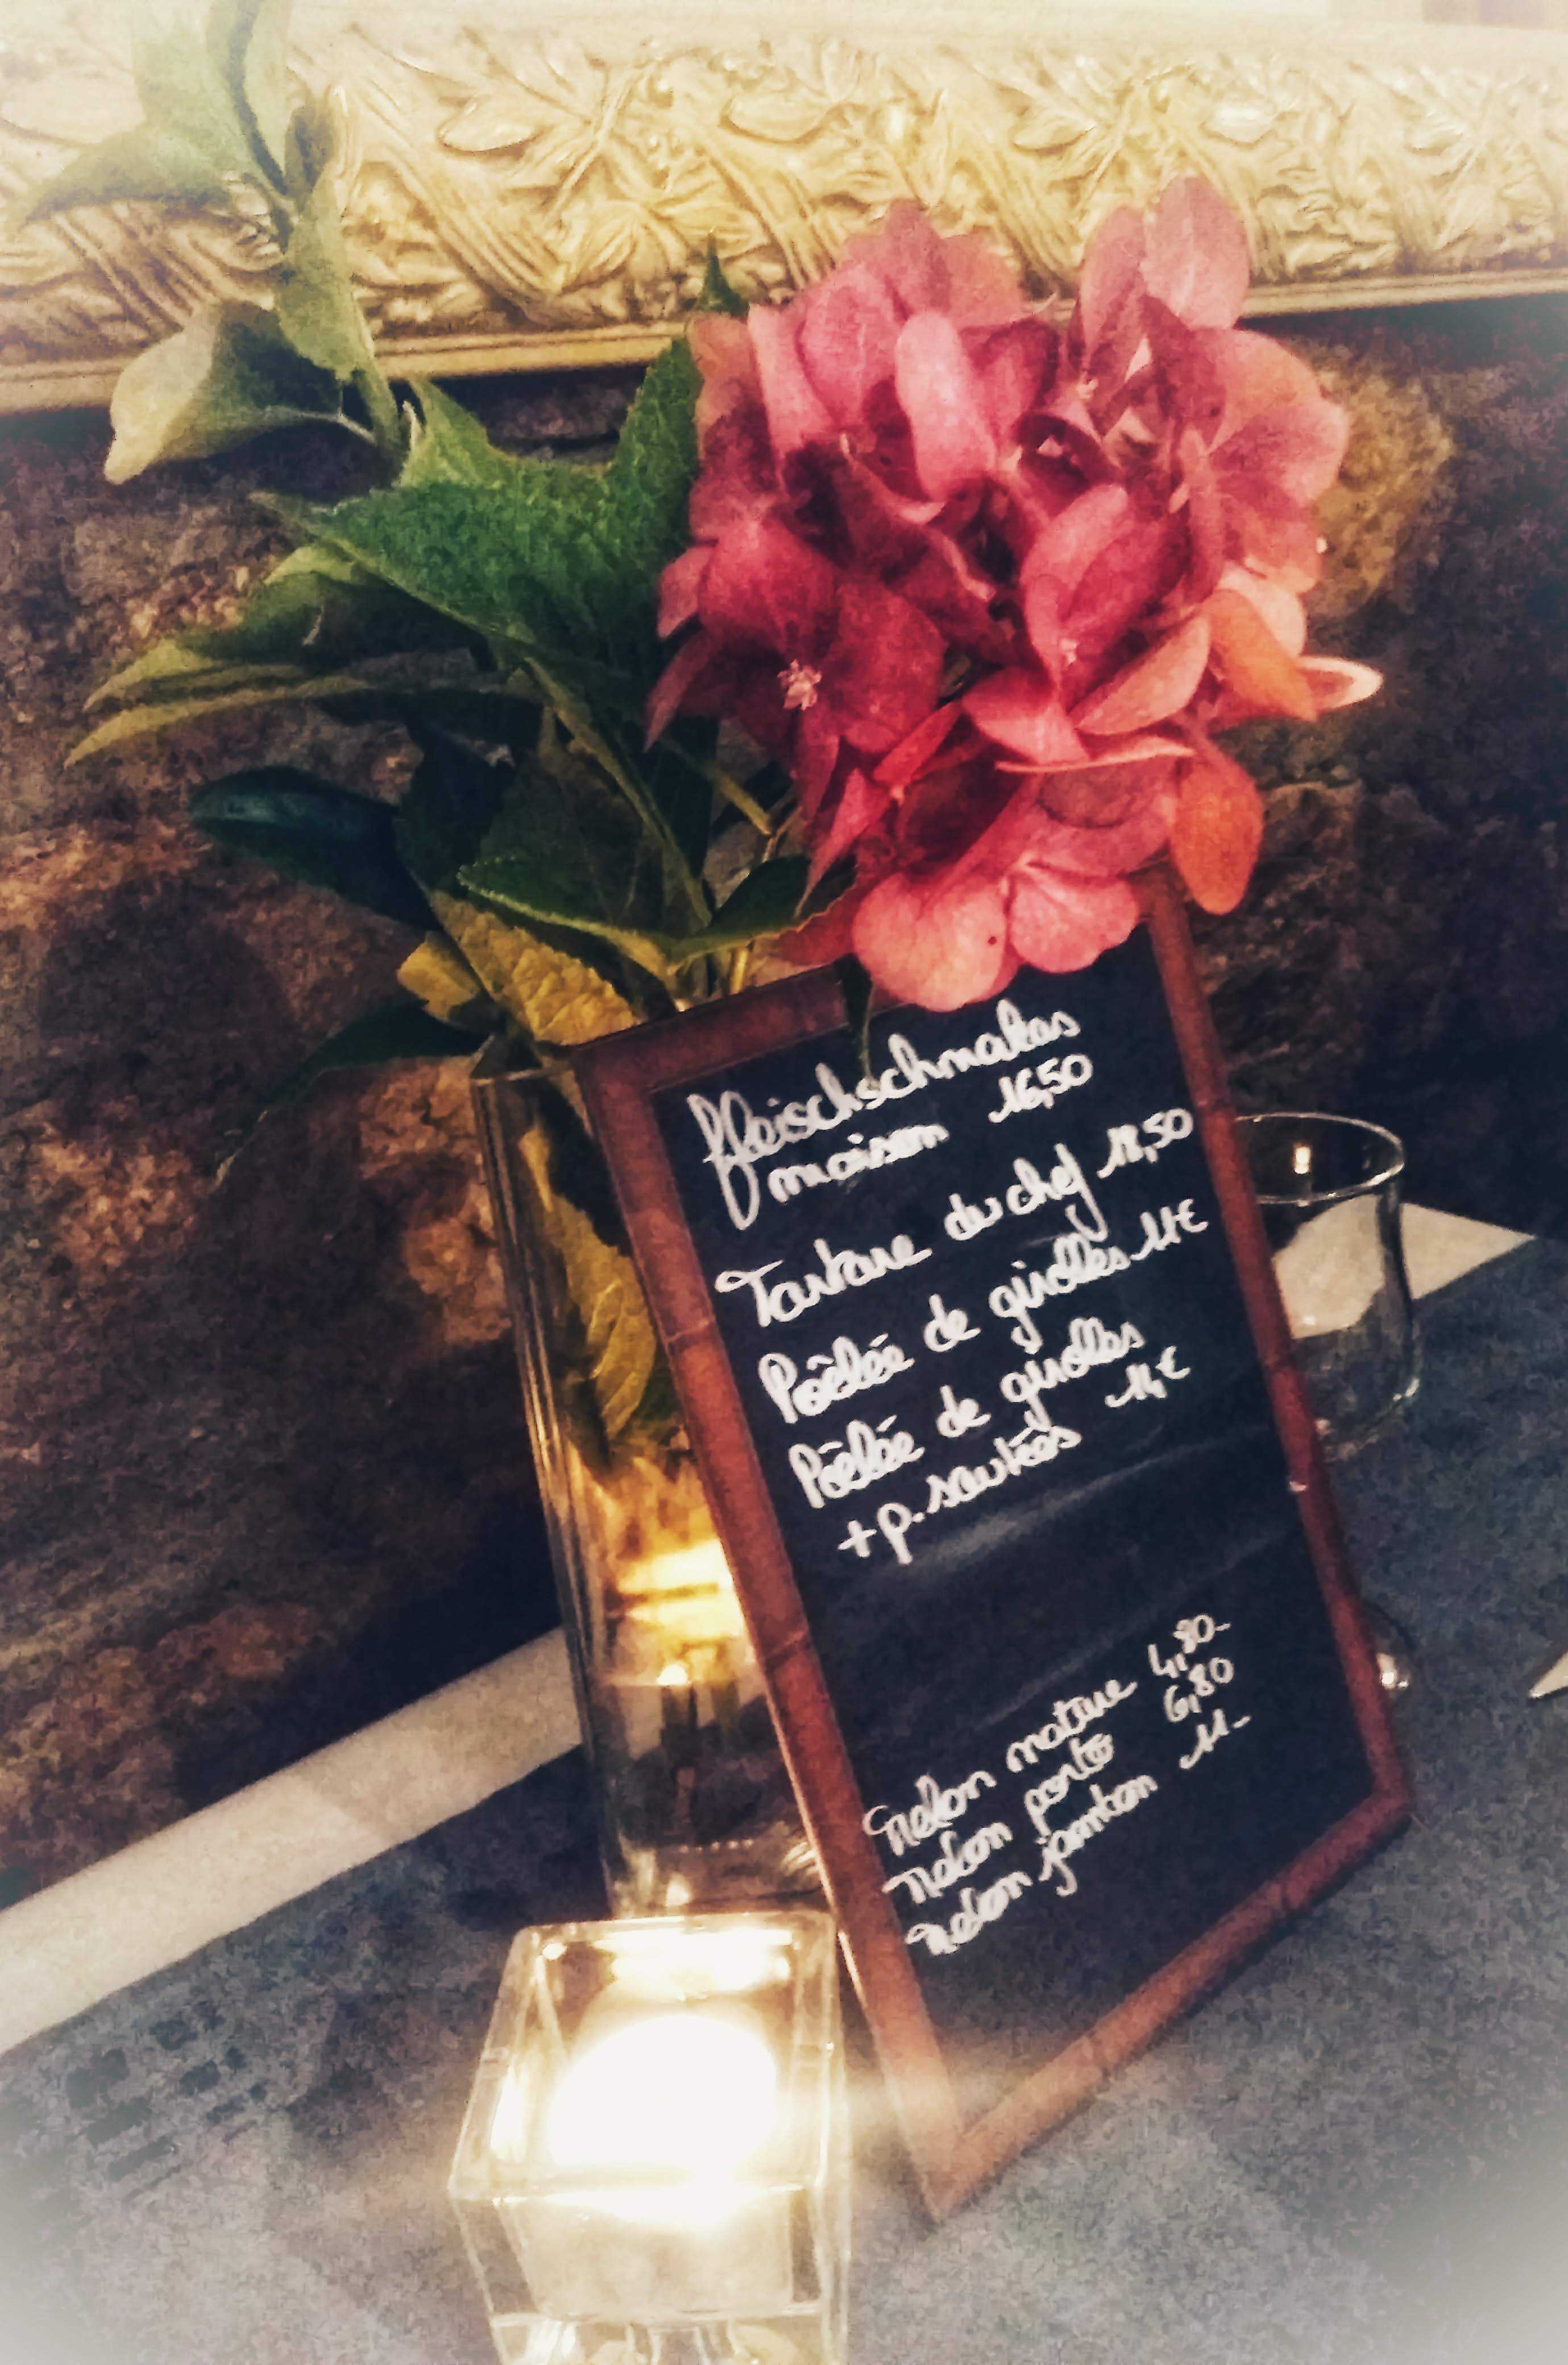 Fleischschmakas
maison 16,50
Tartare du chef 18,50
Poêlée de girolles 11€
Poêlée de girolles
+ p. sautées 14,€
Melon nature 4,80-
Melon porto 6,80
Melon jambon 11-